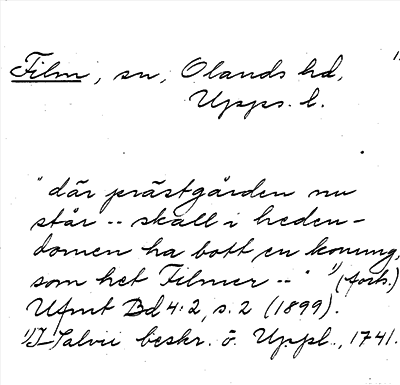 Film, sn, Olands hd,
Upps. l.
"där prästgården nu
står -- skall i heden-
domen ha bott en konung,
som het Filmer -- " 1) (forts.)
Ufmt Bd 4:2, s. 2 (1899).
1) J. Salvii beskr. ö. Uppl., 1741.